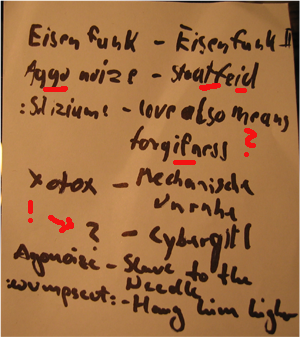 Eisenfunk - Eisenfunk II
Aggo noize - staatfeid
:Stiziume - love also means
forgifness ?
xotox - Mechanische
Unruhe
! ? - Cybergirl
Agonoize - Slave to the
Needle
:wumpscut: - Hang him higher